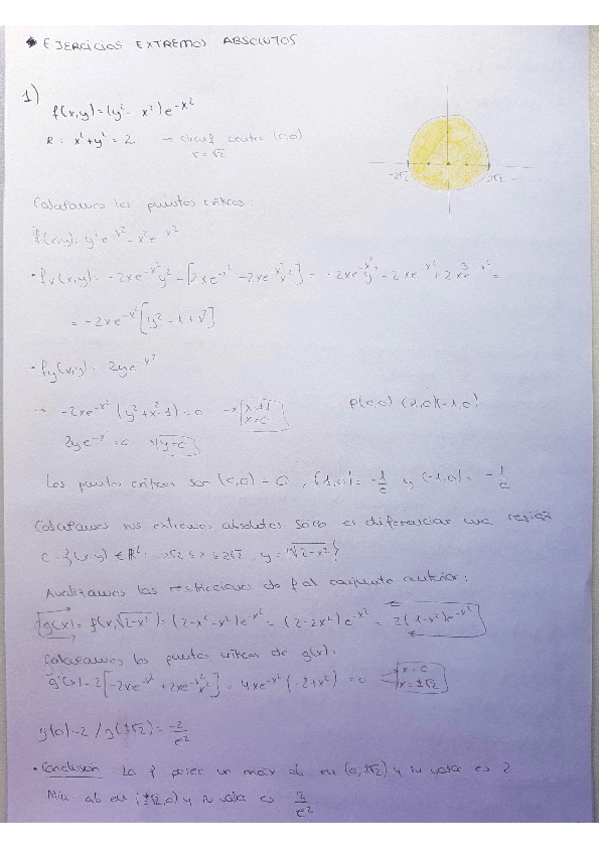 EJERCICIOS EXTREMOS ABSOLUTOS
1)
f(x,y)=(y²- x²)e^-x²
R: x²+y² = 2 → circunf centro (0,0)
r=√2
-2√2 2√2
Calculamos los puntos críticos:
f(x,y)= y²e^-x² - x²e^-x²
• fx(x,y)= -2xe^-x² y² - [2xe^-x² - 2xe^-x² x²] = -2xe^-x² y² - 2xe^-x² + 2x³e^-x² =
= -2xe^-x² [y² - 1 + x²]
• fy(x,y)= 2ye^-x²
→ -2xe^-x² (y²+x²-1)=0 → x=±1 x=0 P(0,0) (1,0)(-1,0)
2ye^-x²=0 y=0
Los puntos críticos son (0,0)=0, (1,0)= -1/e y (-1,0)= -1/e
Calculamos sus extremos absolutos es diferenciar una región
C={(x,y) ∈ R²: -√2 ≤ x ≤ 2√2, y = √2-x²}
Analizamos las restricciones de f al conjunto anterior:
g(x)= f(x,√2-x²)= (2-x²-x²)e^-x² = (2-2x²)e^-x² = 2(1-x²)e^-x²
Calculamos los puntos críticos de g(x):
g'(x)=2[-2xe^-x² + 2xe^-x² x²] = 4xe^-x² (-2+x²) = 0 x=0 x=±√2
g(0)=2 / g(±√2)= -2/e²
• Conclusion: La f posee un máx ab. en (0,±√2) y su valor es 2
Mín ab en (±√2,0) y su valor es 2/e²